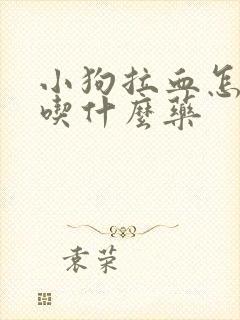 小狗拉血怎
喫什麼藥
袁荣